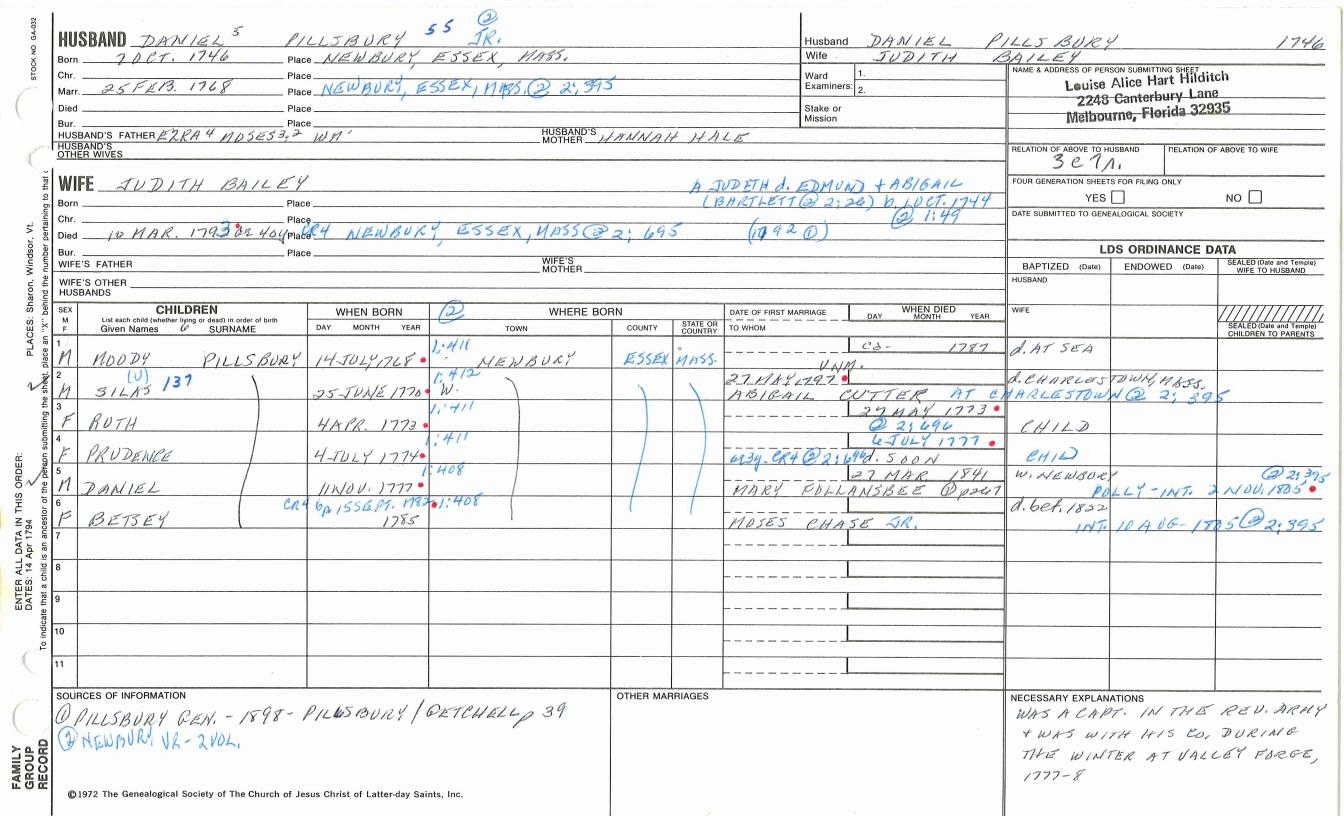 STOCK NO. GA-032
55 ② JR.
HUSBAND DANIEL 5 PILLSBURY
Born 7 OCT. 1746 Place NEWBURY, ESSEX, MASS.
Chr. Place
Marr. 25 FEB. 1768 Place NEWBURY, ESSEX, MASS. ② 2:395
Died Place
Bur. Place
HUSBAND'S FATHER EZRA 4 MOSES 3,2 WM 1 HUSBAND'S MOTHER HANNAH HALE
HUSBAND'S OTHER WIVES
Husband DANIEL PILLSBURY 1746
Wife JUDITH BAILEY
Ward Examiners: 1.
2.
Stake or Mission
NAME & ADDRESS OF PERSON SUBMITTING SHEET
Louise Alice Hart Hilditch
2248 Canterbury Lane
Melbourne, Florida 32935
RELATION OF ABOVE TO HUSBAND RELATION OF ABOVE TO WIFE
FOUR GENERATION SHEETS FOR FILING ONLY
YES NO
DATE SUBMITTED TO GENEALOGICAL SOCIETY
WIFE JUDITH BAILEY
A JUDETH d. EDMUND + ABIGAIL
(BARTLETT ② 2:26) b. 1 OCT. 1744
② 1:49
Born Place
Chr. Place
Died 10 MAR. 1793 Place CR4 NEWBURY, ESSEX, MASS ② 2:695 (1792 ①)
Bur. Place
WIFE'S FATHER WIFE'S MOTHER
WIFE'S OTHER HUSBANDS
LDS ORDINANCE DATA
BAPTIZED (Date) ENDOWED (Date) SEALED (Date and Temple) WIFE TO HUSBAND
HUSBAND
WIFE
SEALED (Date and Temple) CHILDREN TO PARENTS
SEX M F CHILDREN
List each child (whether living or dead) in order of birth
Given Names 6 SURNAME
WHEN BORN DAY MONTH YEAR
② WHERE BORN TOWN COUNTY STATE OR COUNTRY
DATE OF FIRST MARRIAGE TO WHOM
WHEN DIED DAY MONTH YEAR
1 M MOODY PILLSBURY 14 JULY 1768 1:411 NEWBURY ESSEX MASS. UNM. ca- 1787 d. AT SEA
2 M SILAS (U) 137 25 JUNE 1770 1:412 W. 27 MAY 1797 d. CHARLESTOWN, MASS.
ABIGAIL CUTTER AT CHARLESTOWN ② 2:395
3 F RUTH 4 APR. 1773 1:411 27 MAY 1773 ② 2:696 CHILD
4 F PRUDENCE 4 JULY 1774 1:411 6 JULY 1777 CR4 ② 2:696 d. SOON CHILD
5 M DANIEL 11 NOV. 1777 1:408 27 MAR. 1841 W. NEWBURY ② 2:395
MARY FOLLANSBEE ① p267 POLLY - INT. 2 NOV. 1805
6 F BETSEY CR4 bp 15 SEPT. 1782 1:408 d. bef. 1822
1785 MOSES CHASE JR. INT. 10 AUG - 1805 ② 2:395
7
8
9
10
11
SOURCES OF INFORMATION
① PILLSBURY GEN. - 1898 - PILLSBURY / GETCHELL p 39
② NEWBURY VR - 2 VOL.
OTHER MARRIAGES
NECESSARY EXPLANATIONS
WAS A CAPT. IN THE REV. ARMY
+ WAS WITH HIS CO. DURING
THE WINTER AT VALLEY FORGE,
1777-8
©1972 The Genealogical Society of The Church of Jesus Christ of Latter-day Saints, Inc.
FAMILY GROUP RECORD
ENTER ALL DATA IN THIS ORDER:
DATES: 14 Apr 1794
PLACES: Sharon, Windsor, Vt.
To indicate that a child is an ancestor of the person submitting the sheet, place an "X" behind the number pertaining to that